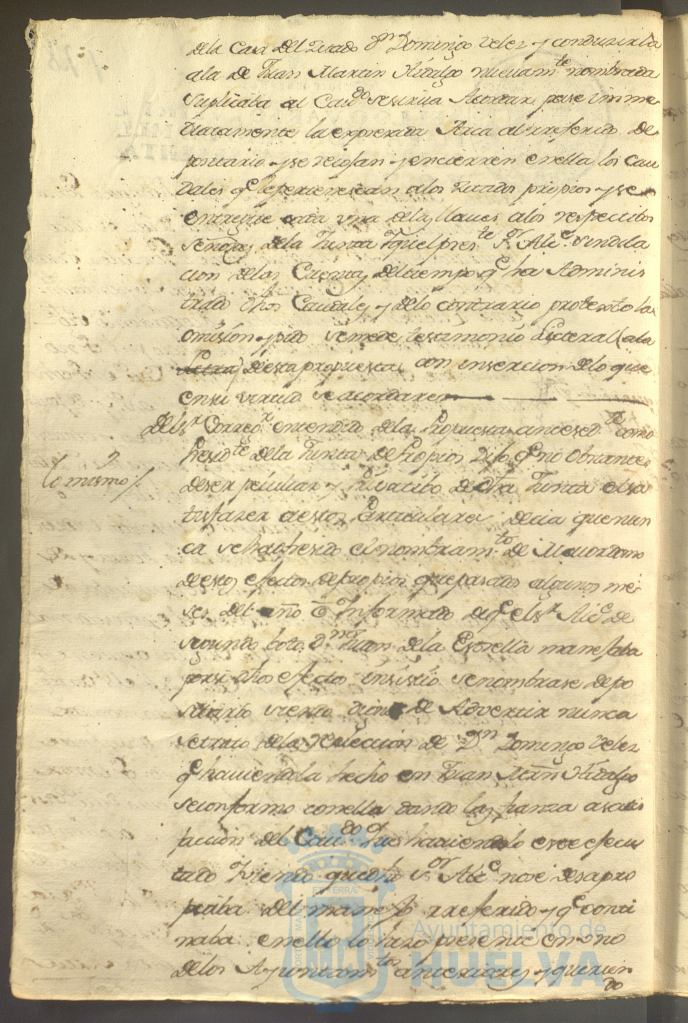 dela Casa del Zitado Dn Domingo Velez y conducirla
ala de Juan Martin Hidalgo nuevamte nombrado
Suplicaba al Caudo se sirva Acordar pase imme
diatamente la expresada Arca al referido De
positario y se recojan y encierren en ella los Cau
dales qe. le pertenescan alos Zitados propios y se
entregue cada una delas llaves alos respectibos
Señores dela Junta
cion delas Cuentas del tiempo qe. ha Adminis
trado dhos Caudales y delo contrario protexto la
omision y pido se me de testimonio Literal (ala
Letra) de esta propuesta con insercion delo que
en su virtud se acordare
El Sr Corregr. entendido dela Propuesta antecedte como
Presidte dela Junta de Propios Dijo qe. no obstante
de ser peculiar y Pribatibo de dha Junta el sa
tisfazer a estos Particulares decia que nun
ca se ha ofrecido el nombramto de Mayordomo
de estos efectos de propios que pasados algunos me
ses del año é Informado de qe. el Sr Alce de
segundo boto Dn Juan dela Estrella manejaba
por si dhos efectos insistio se nombrase depo
sitario siendo digno de Advertir nunca
se trato dela reeleccion de Dn Domingo Velez
qe. haviendola hecho en Juan Martn Hidalgo
se conformo con ella dando la fianza a satis
faccion del Caudo qe haviendolo este efecu
tado Viendo que dho Sr Alce no se desapro
piaba del manejo referido y qe conti
nuaba en ello lo hizo presente en uno
delos Ayuntamtos anteriores y querien
do
lo mismo
Ayuntamiento de
HUELVA